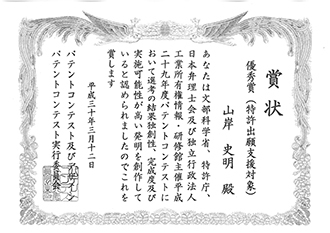 賞状
優秀賞(特許出願支援対象)
山岸 史明 殿
あなたは文部科学省、特許庁、
日本弁理士会及び独立行政法人
工業所有権情報・研修館主催平成
二十九年度パテントコンテストに
おいて選考の結果独創性、完成度及び
実施可能性が高い発明を創作して
いると認められましたのでこれを
賞します
平成三十年三月十二日
パテントコンテスト及びデザイン
パテントコンテスト実行委員会